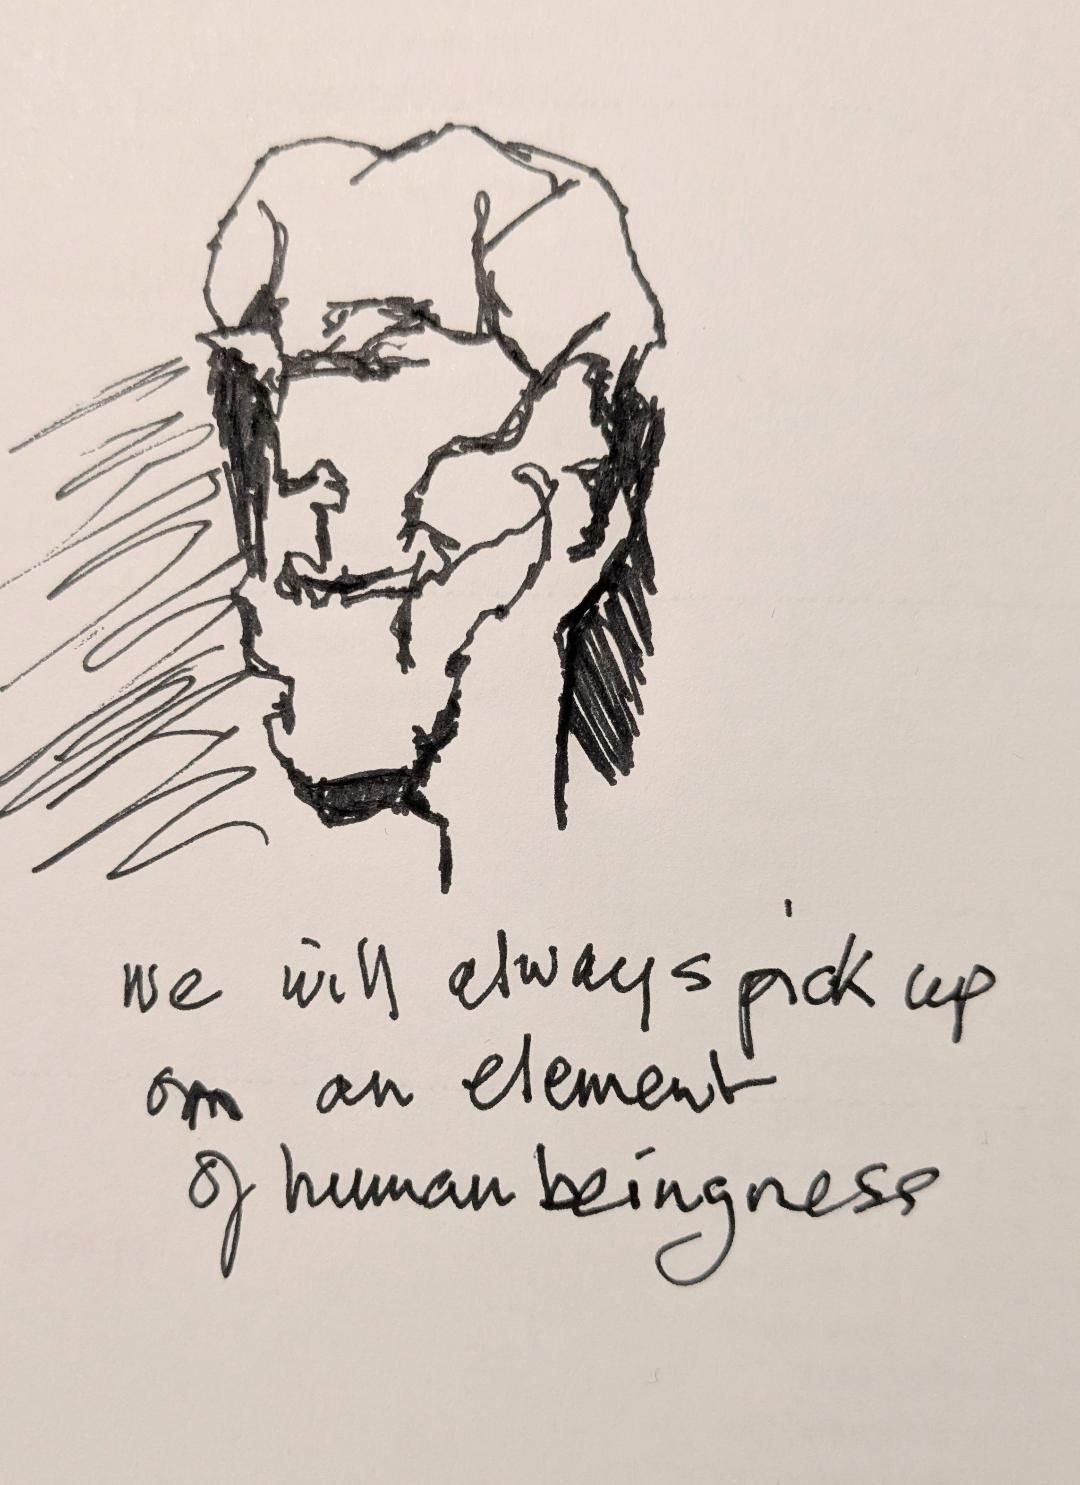 we will always pick up
on an element
of human beingness